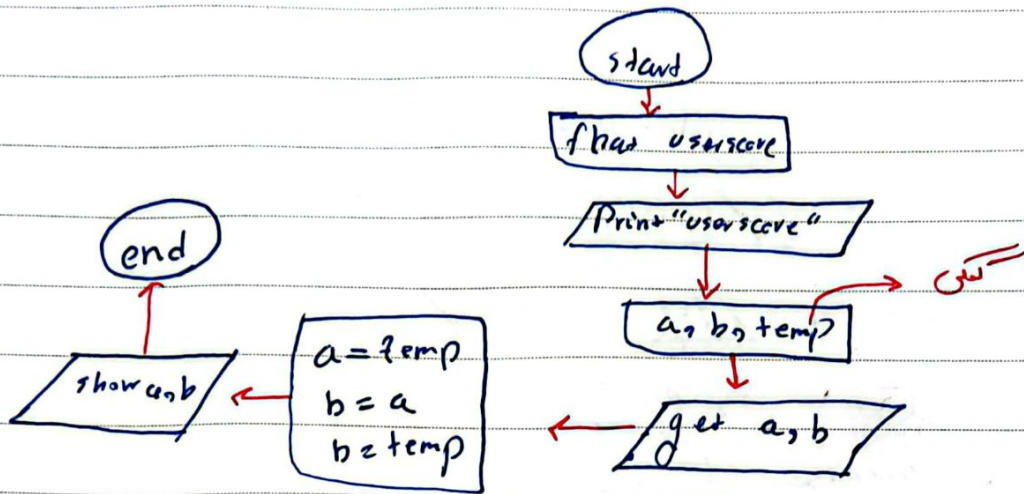 start
float userscore
Print "userscore"
a, b, temp
get a, b
a = temp
b = a
b = temp
show a, b
end